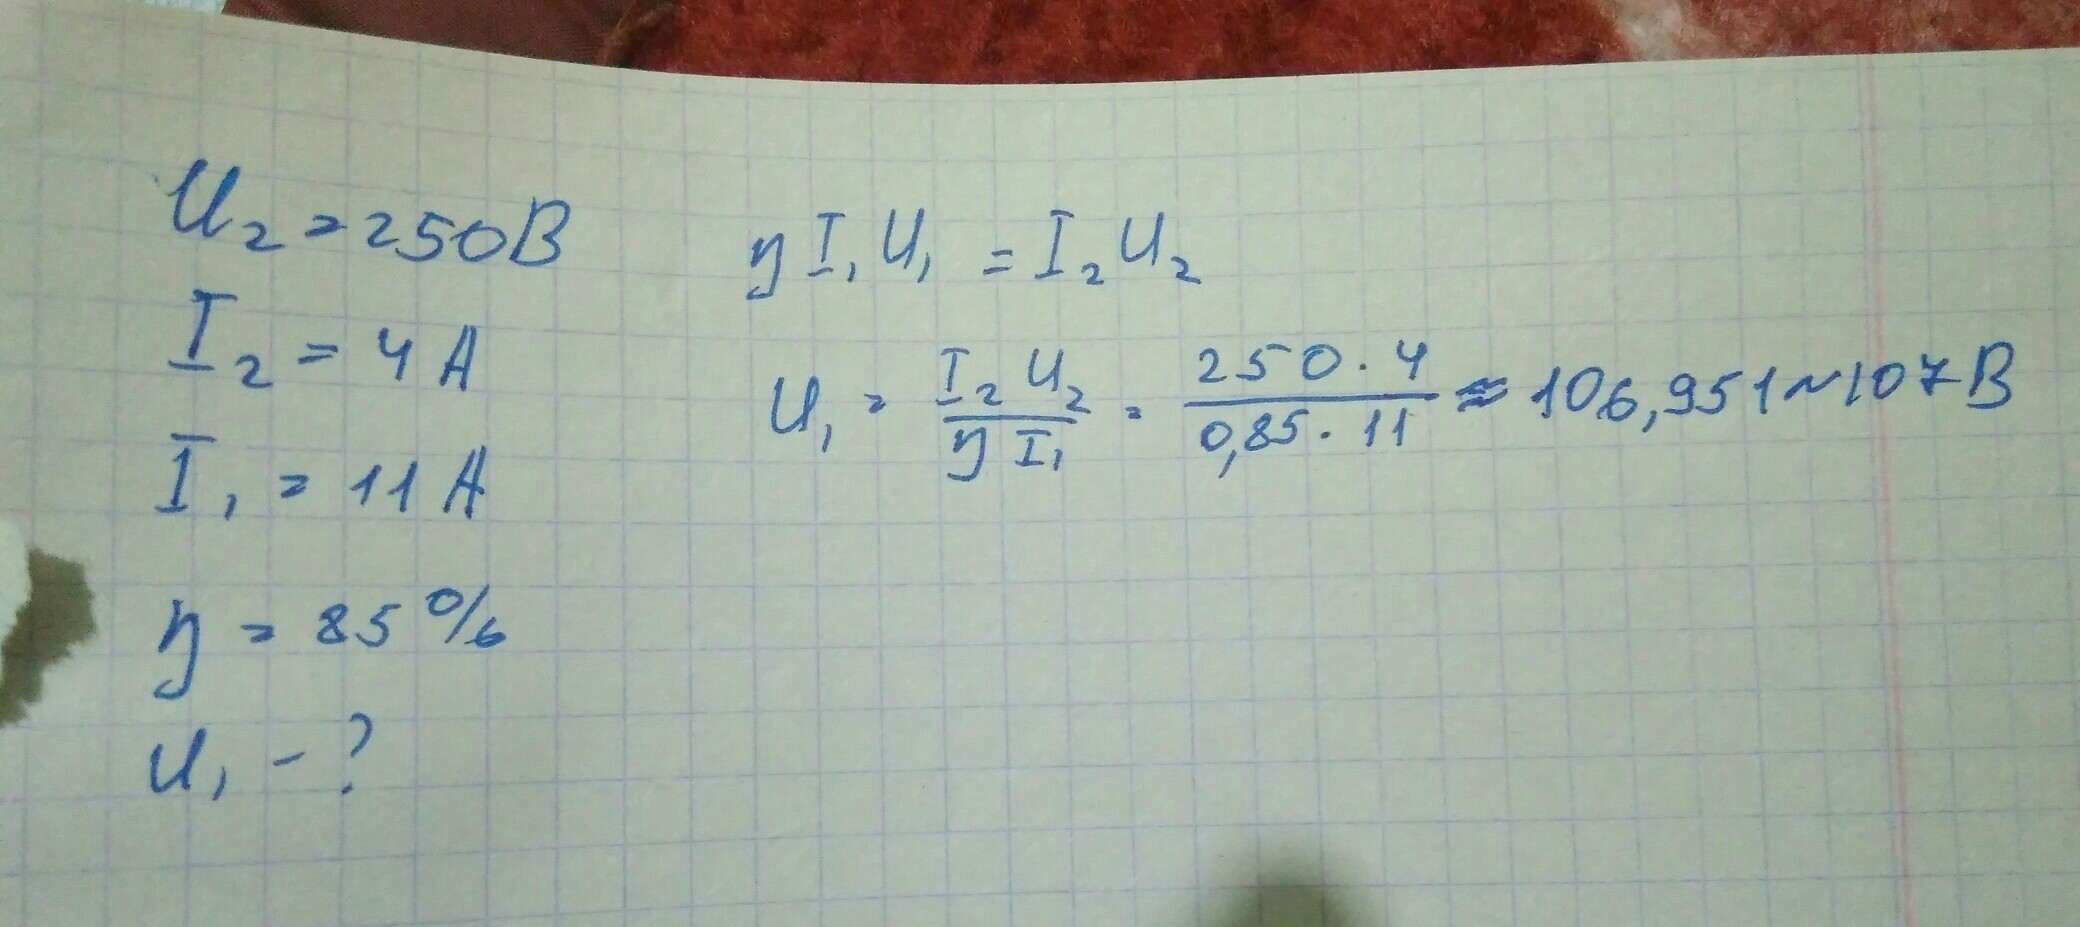 U₂ = 250В
I₂ = 4 А
I₁ = 11 А
η = 85 %
U₁ - ?
η I₁ U₁ = I₂ U₂
U₁ = I₂ U₂ / η I₁ = 250 · 4 / 0,85 · 11 ≈ 106,951 ~ 107 В